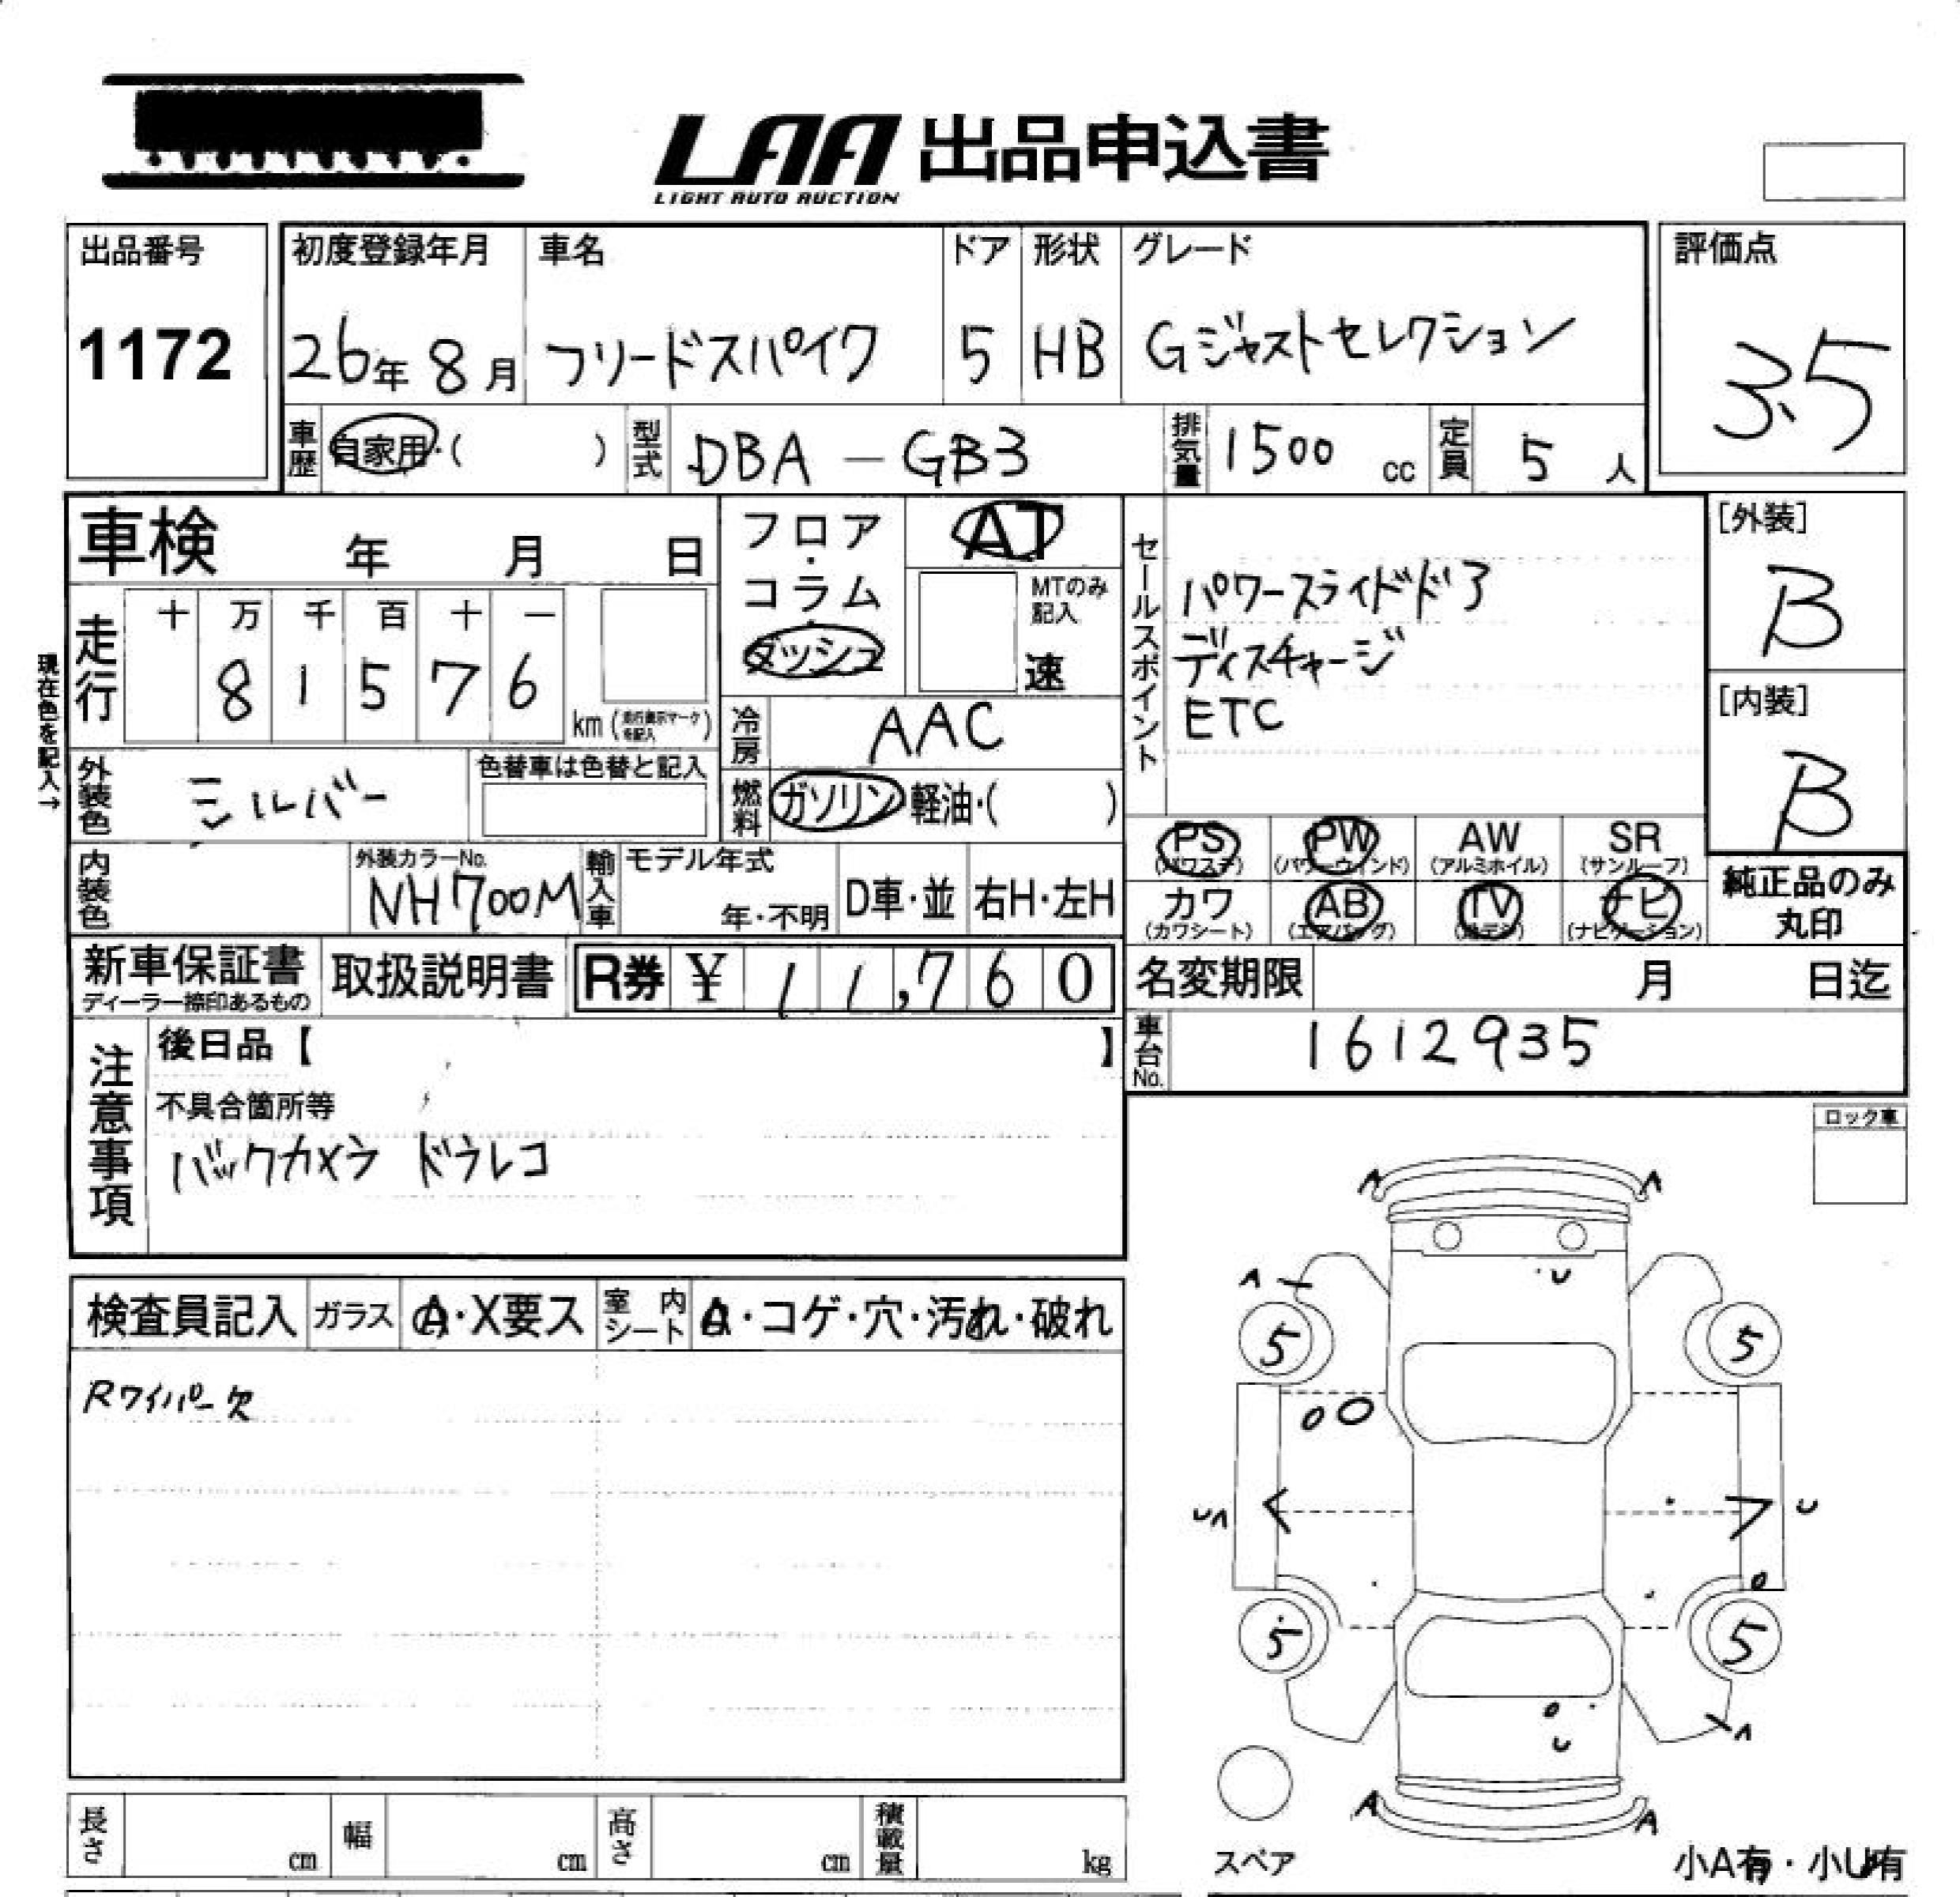 LAA 出品申込書
LIGHT AUTO AUCTION
出品番号
1172
初度登録年月 車名 ドア 形状 グレード
26年 8月 フリードスパイク 5 HB Gジャストセレクション
評価点
3.5
車歴 自家用・( ) 型式 DBA-GB3 排気量 1500 cc 定員 5 人
車検 年 月 日
フロア・コラム・ダッシュ
AT
MTのみ記入
速
走行 十 万 千 百 十 一
8 1 5 7 6
km (走行表示マークを記入)
現在色を記入→
冷房 AAC
外装色 シルバー 色替車は色替と記入
燃料 ガソリン 軽油・( )
内装色
外装カラーNo.
NH700M
輸入車 モデル年式
年・不明 D車・並 右H・左H
セールスポイント
パワースライドドア
ディスチャージ
ETC
[外装]
B
[内装]
B
PS PW AW SR
(パワステ) (パワーウィンド) (アルミホイル) (サンルーフ)
カワ AB TV ナビ
(カワシート) (エアバッグ) (テレビ) (ナビゲーション)
純正品のみ
丸印
新車保証書
ディーラー捺印あるもの
取扱説明書 R券 ¥ 11,760
名変期限 月 日迄
車台No. 1612935
注意事項
後日品【 】
不具合箇所等
バックカメラ ドラレコ
ロック車
検査員記入 ガラス A・X要ス 室内シート A・コゲ・穴・汚れ・破れ
Rワイパー欠
A A
A U
5 5
UA U
5 5
U A
A A
スペア
小A有・小U有
長さ cm 幅 cm 高さ cm 積載量 kg